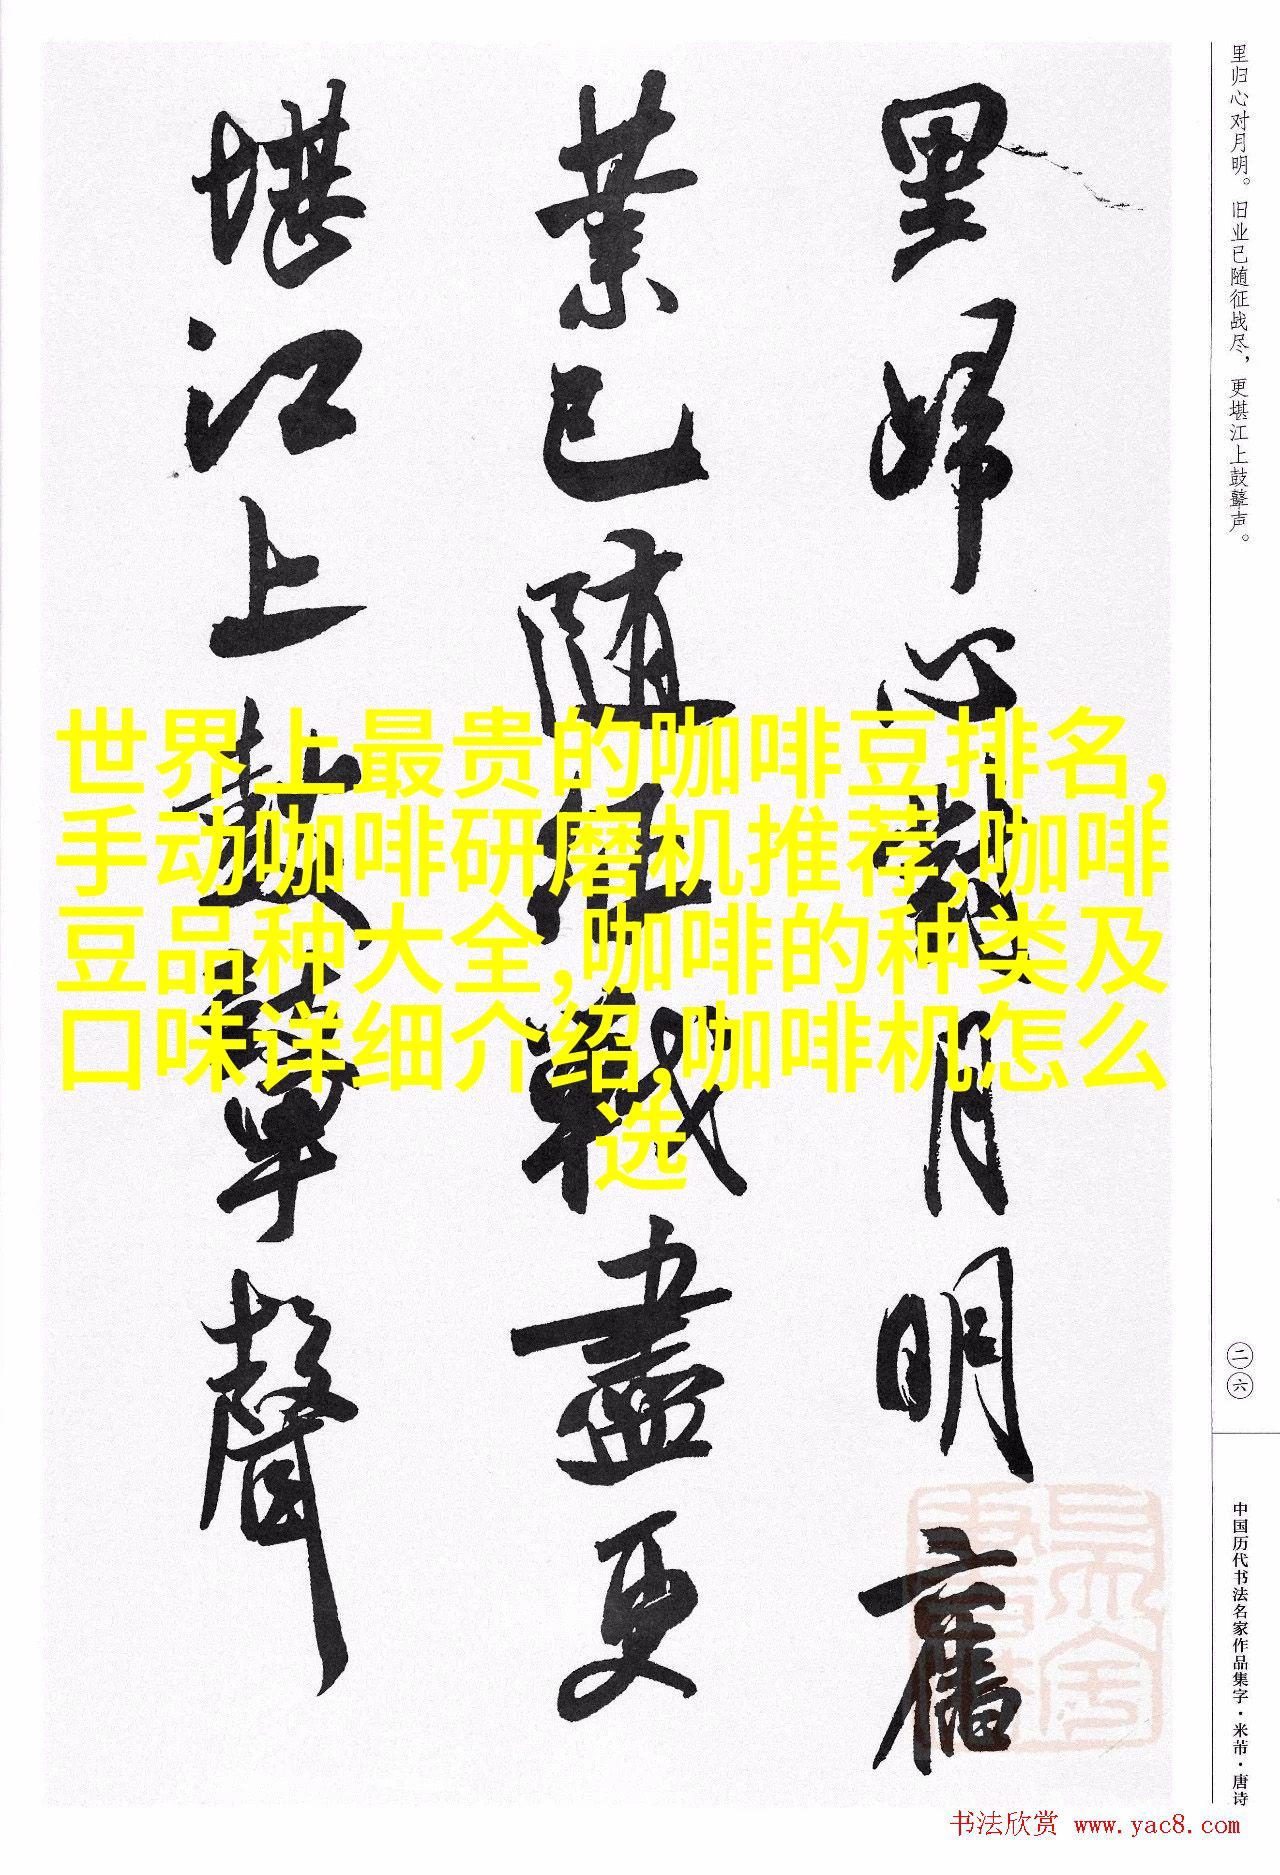 里归心对月明。旧业已随征战尽，更堪江上鼓鼙声。
里歸心對月明舊
業已随征戰盡更
堪江上鼓鼙聲
世界上最贵的咖啡豆排名,
手动咖啡研磨机推荐,咖啡
豆品种大全,咖啡的种类及
口味详细介绍,咖啡机怎么
选
二六
中国历代书法名家作品集字·米芾·唐诗
书法欣赏 www.yac8.com